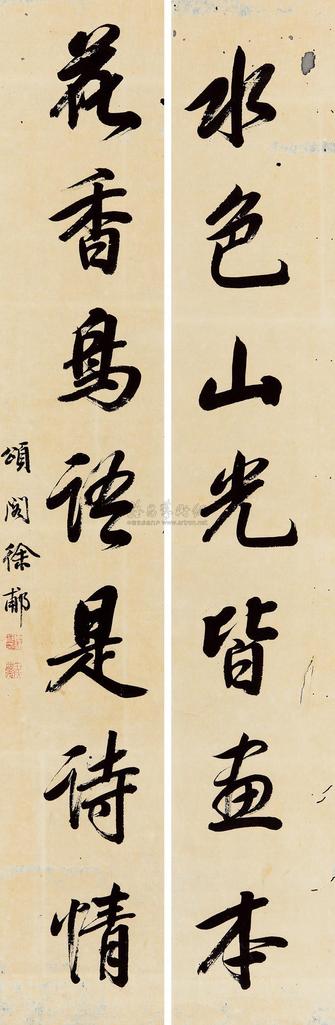 水色山光皆画本
花香鳥語是詩情
頌閣徐郙